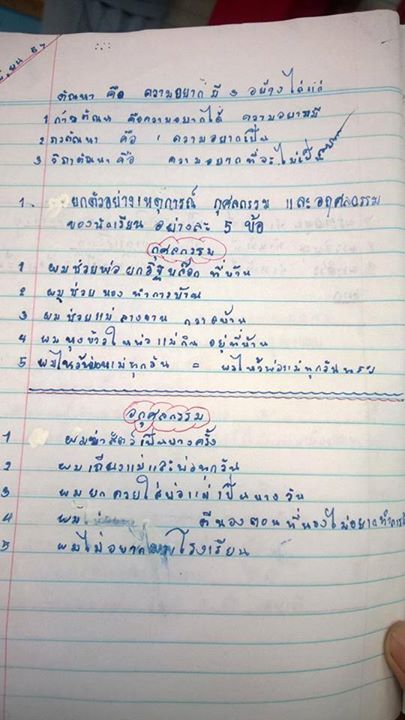 ตัณหา คือ ความอยากมี 3 อย่าง ได้แก่
1 กามตัณหา คือความอยากได้ ความอยากมี
2 ภวตัณหา คือ ความอยากเป็น
3 วิภาตัณหา คือ ความอยากที่จะไม่เป็น
1. ยกตัวอย่างเหตุการณ์ กุศลกรรม และอกุศลกรรม
ของนักเรียน อย่างละ 5 ข้อ
กุศลกรรม
1 ผมช่วยพ่อยกอิฐบล็อก ที่บ้าน
2 ผมช่วยน้อง ทำการบ้าน
3 ผมช่วยแม่ล้างจาน กวาดบ้าน
4 ผมหุงข้าวให้พ่อแม่กิน อยู่ที่บ้าน
5 ผมไหว้พ่อแม่ทุกวัน = ผมไหว้พ่อแม่ทุกวันครับ
อกุศลกรรม
1 ผมฆ่าสัตว์เป็นบางครั้ง
2 ผมเถียงแม่และพ่อทุกวัน
3 ผมยกควยใส่พ่อแม่เป็นบางวัน
4 ผม ตีน้องตอนที่น้องไม่อยาก
5 ผมไม่อยาก โรงเรียน